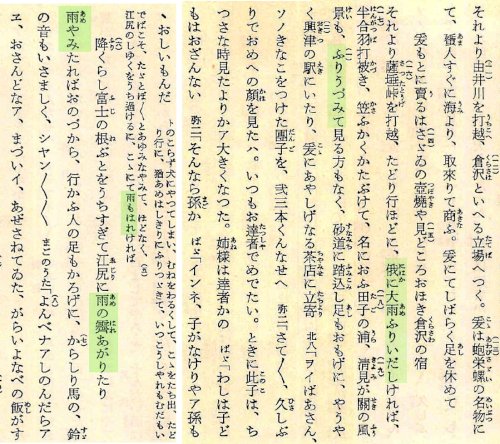 それより由井川を打越、倉沢といへる立場へつく。爰は蚫栄螺の名物に
て、蜑人すぐに海より、取來りて商ふ。爰にてしばらく足を休めて
爰もとに賣るはさゞゐの壺燒や見どころおほき倉沢の宿
それより薩埵峠を打越、たどり行ほどに、俄に大雨ふりいだしければ、
半合羽打被き、笠ふかくかたぶけて、名におふ田子の浦、清見が關の風
景も、ふりうづみて見る方もなく、砂道に踏込し足もおもげに、やうや
く興津の駅にいたり、爰にあやしげなる茶店に立寄 北八「ヲイばあさん、
ソノきなこをつけた團子を、弐三本くんなせへ 弥二「さて〳〵、久しぶ
りでおめへの顔を見たハ。いつもお達者でめでたい。ときに此子は、ち
つさな時見たよりかア大きくなつた。姉様は達者かの ばゞ「わしは子ど
もはおざんない 弥二「そんなら孫か ばゞ「インネ、子がなけりやア孫も
、おしいもんだ
トのこらず犬にやつてしまい、むねをわるくして、こゝをたち出、たど
り行に、猶あめはしきりにふりつゞきて、いつこうしやれもむだもい
でばこそ、たゞとぼ〳〵とあゆみなやみて、ほどなく、
江尻のしゆくをうち過けるに、こゝにて雨もはれければ
降くらし富士の根ぶとをうちすぎて江尻に雨の霽あがりたり
雨やみたればおのづから、行かふ人の足もかろげに、からしり馬の、鈴
の音もいさましく、シヤン〳〵〳〵 まごのうた「よんべナアしのんだらア
ヱ、おさんどなア、まづいイ、あぜさねてゐた、がらいよなべの飯がす